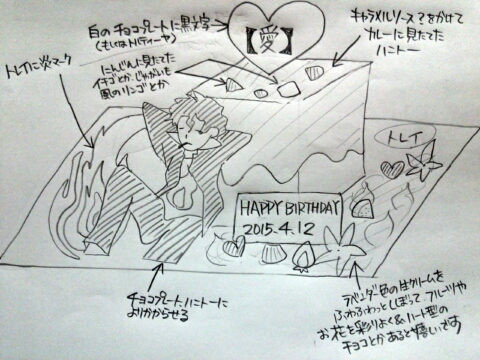 白のチョコプレートに黒文字
(もしくはトルティーヤ)
【愛】
キャラメルソース?をかけて
カレーに見たてた
ハニトー
トレイに炎マーク
にんじんに見たてた
イチゴとか、じゃがいも
風のリンゴとか
トレイ
HAPPY BIRTHDAY
2015.4.12
チョコプレート。ハニトーに
よりかからせる
ラベンダー色の生クリームを
ふわふわっとしぼって、フルーツや
お花を彩りよく&ハート型の
チョコとかあると嬉しいです